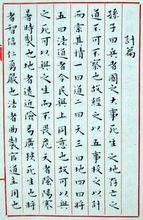 計篇
孫子曰兵者國之大事死生之地存亡之
道不可不察也故經之以五事校之以計
而索其情一曰道二曰天三曰地四曰將
五曰法道者令民與上同意也故可以與
之死可以與之生而不畏危天者陰陽寒
暑時制也地者遠近險易廣狹死生也將
者智信仁勇嚴也法者曲制官道主用也